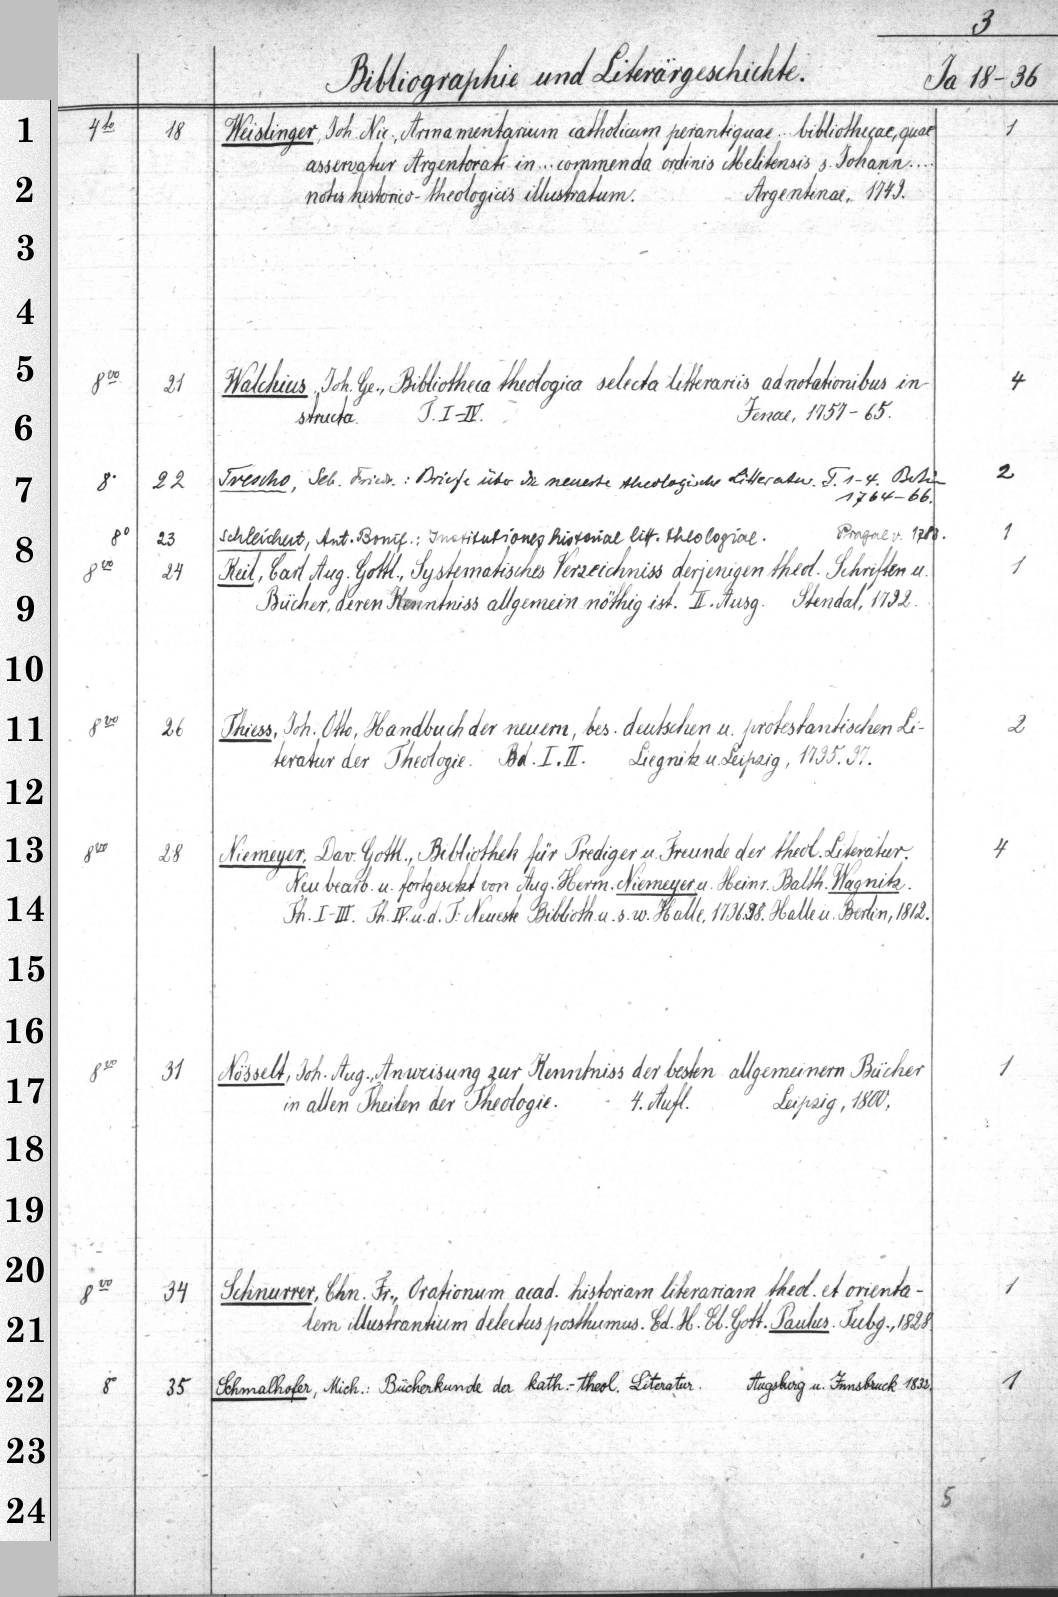 3
Bibliographie und Literärgeschichte. Ja 18-36
1 4to 18 Weislinger, Joh. Nic., Armamentarium catholicum perantiquae... bibliothecae, quae 1
asservatur Argentorati in... commenda ordinis Melitensis s. Johann....
2 notis historico-theologicis illustratum. Argentinae, 1749.
3
4
5 8vo 21 Walchius, Joh. Ge., Bibliotheca theologica selecta litterariis adnotationibus in- 4
structa. T. I-IV. Jenae, 1757-65.
6
7 8° 22 Trescho, Seb. Friedr.: Briefe über die neueste theologische Litteratur. T. 1-4. Berlin 2
1764-66.
8 8° 23 Schleichert, Ant. Bonif.: Institutiones historiae litt. theologiae. Pragae 1
8vo 24 Keil, Carl Aug. Gottl., Systematisches Verzeichniss derjenigen theol. Schriften u. 1
9 Bücher, deren Kenntniss allgemein nöthig ist. II. Ausg. Stendal, 1792.
10
11 8vo 26 Thiess, Joh. Otto, Handbuch der neuern, bes. deutschen u. protestantischen Li- 2
teratur der Theologie. Bd. I. II. Liegnitz u. Leipzig, 1795. 97.
12
13 8vo 28 Niemeyer, Dav. Gottl., Bibliothek für Prediger u. Freunde der theol. Literatur. 4
Neu bearb. u. fortgesetzt von Aug. Herm. Niemeyer u. Heinr. Balth. Wagnitz.
14 Th. I-III. Th. IV. u. d. T: Neueste Biblioth. u. s. w. Halle, 1796.98. Halle u. Berlin, 1812.
15
16
8vo 31 Nösselt, Joh. Aug., Anweisung zur Kenntniss der besten allgemeinern Bücher 1
17 in allen Theilen der Theologie. 4. Aufl. Leipzig, 1800.
18
19
20 8vo 34 Schnurrer, Chn. Fr., Orationum acad. historiam literariam theol. et orienta- 1
21 lem illustrantium delectus posthumus. Ed. H. Eb. Gott. Paulus. Tubg., 1828
22 8° 35 Schmalhofer, Mich.: Bücherkunde der kath.-theol. Literatur. Augsburg u. Innsbruck 1
23
24 5